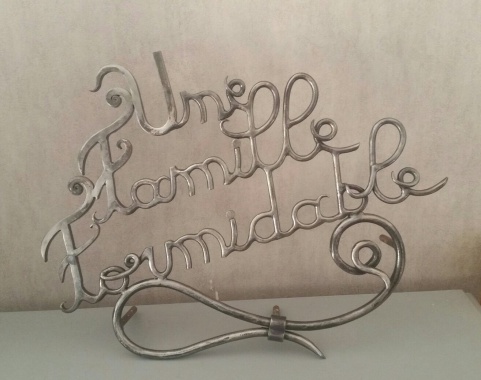 Une
Famille
Formidable